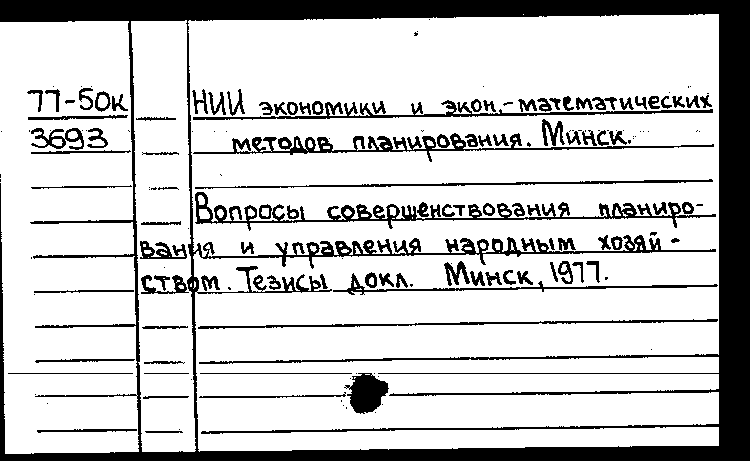 77-50к НИИ экономики и экон.-математических
3693 методов планирования. Минск.
Вопросы совершенствования планиро-
вания и управления народным хозяй-
ством. Тезисы докл. Минск, 1977.